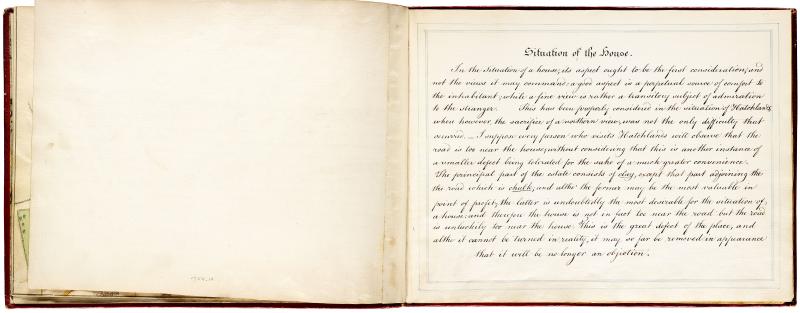 Situation of the House.
In the situation of a house, its aspect ought to be the first consideration; and
not the views it may command: a good aspect is a perpetual source of comfort to
the inhabitant; while a fine view is rather a transitory subject of admiration
to the stranger. This has been properly considered in the situation of Hatchlands
when however, the sacrifice of a northern view, was not the only difficulty that
occurrd. — I suppose every person who visits Hatchlands will observe that the
road is too near the house; without considering that this is another instance of
a smaller defect being tolerated for the sake of a much greater convenience.
The principal part of the estate consists of clay, except that part adjoining the
the road which is chalk; and altho the former may be the most valuable in
point of profit, the latter is undoubtedly the most desirable for the situation of
a house: and therefore the house is not in fact too near the road but the road
is unluckily too near the house. This is the great defect of the place, and
altho it cannot be turned in reality, it may so far be removed in appearance
that it will be no longer an objection.